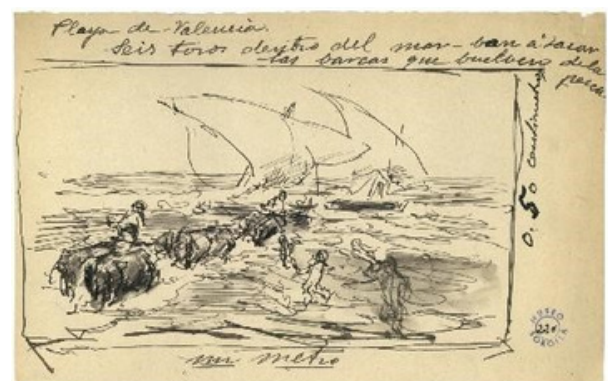 Playa de Valencia.
Seis toros dentro del mar - ban á sacar
las barcas que buelben de la
pesca.
0.50 centimetros
un metro
MUSEO
SOROLLA